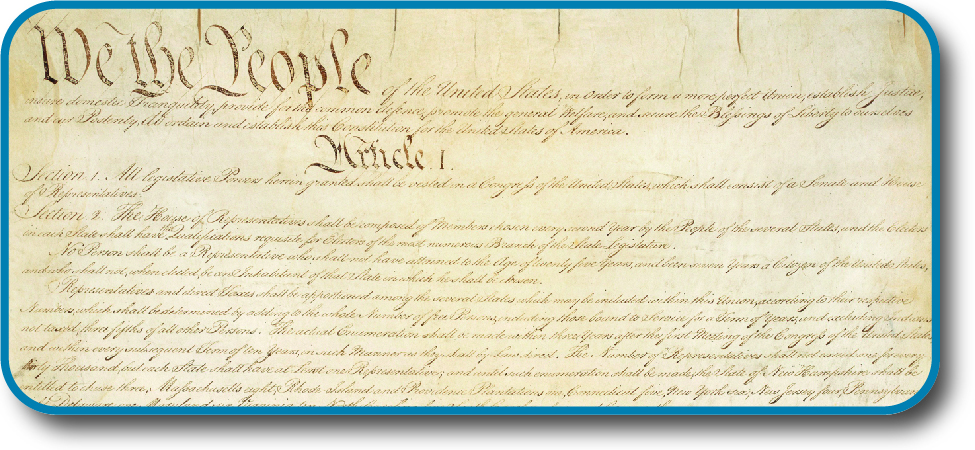 We the People
of the United States, in Order to form a more perfect Union, establish Justice,
insure domestic Tranquility, provide for the common defence, promote the general Welfare, and secure the Blessings of Liberty to ourselves
and our Posterity, do ordain and establish this Constitution for the United States of America.
Article. I.
Section. 1. All legislative Powers herein granted shall be vested in a Congress of the United States, which shall consist of a Senate and House
of Representatives.
Section. 2. The House of Representatives shall be composed of Members chosen every second Year by the People of the several States, and the Electors
in each State shall have the Qualifications requisite for Electors of the most numerous Branch of the State Legislature.
No Person shall be a Representative who shall not have attained to the Age of twenty five Years, and been seven Years a Citizen of the United States,
and who shall not, when elected, be an Inhabitant of that State in which he shall be chosen.
Representatives and direct Taxes shall be apportioned among the several States which may be included within this Union, according to their respective
Numbers, which shall be determined by adding to the whole Number of free Persons, including those bound to Service for a Term of Years, and excluding Indians
not taxed, three fifths of all other Persons. The actual Enumeration shall be made within three Years after the first Meeting of the Congress of the United States,
and within every subsequent Term of ten Years, in such Manner as they shall by Law direct. The Number of Representatives shall not exceed one for every
thirty Thousand, but each State shall have at Least one Representative; and until such enumeration shall be made, the State of New Hampshire shall be
entitled to chuse three, Massachusetts eight, Rhode Island and Providence Plantations one, Connecticut five, New York six, New Jersey four, Pennsylvania